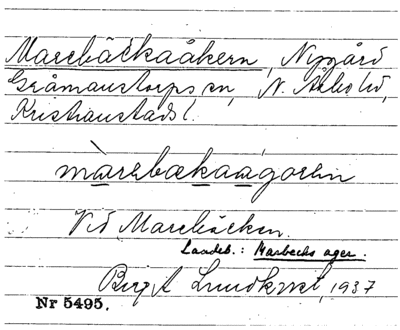 Marebäckaåkern, Nygård
Gråmanstorps sn, N. Åsbo hd,
Kristianstads l.
màrebækaagoren
Vid Marebäcken.
Landeb.: Marbecks ager.
Birgit Lundkvist, 1937
Nr 5495.